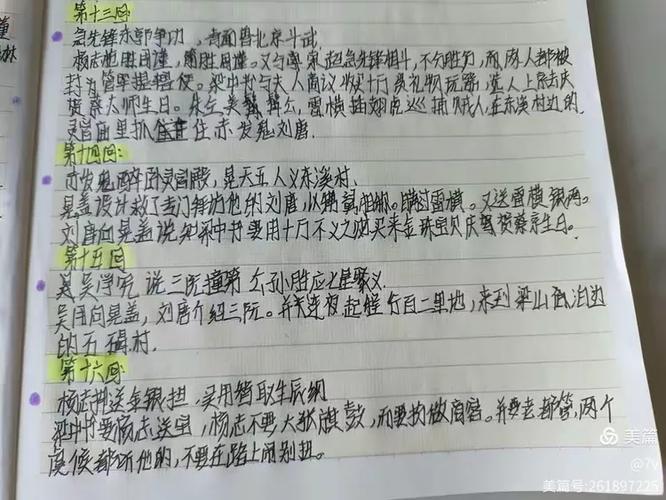 第十三回
急先锋东郭争功,青面兽北京斗武.
杨志胜周谨,
又与索超急先锋相斗,不分胜负,而两人都被
封为管军提辖使。梁中书与夫人商议收买十万贯礼物玩器,选人上京去庆
贺蔡太师生日。朱仝美髯公,雷横插翅虎巡捕贼人,在东溪村边的
灵官庙里抓住赤发鬼刘唐.
第十四回:
赤发鬼醉卧灵官殿,晁天王认义东溪村.
晁盖设计救了专门来投他的刘唐,以甥舅相称。瞒过雷横。又送雷横银两。
刘唐向晁盖说知梁中书要用十万不义之财买来金珠宝贝庆贺蔡京生日。
第十五回
吴学究说三阮撞筹 公孙胜应七星聚义.
吴用向晁盖,刘唐介绍三阮。并连夜起程行百二里地,来到梁山泊边
的石碣村.
第十六回:
杨志押送金银担,吴用智取生辰纲
梁中书要杨志送宝,杨志不要大张旗鼓,而要扮做商客。并要老都管,两个
虞候都听他的,不要在路上闹别扭。
美篇
@7y
美篇号:261897225